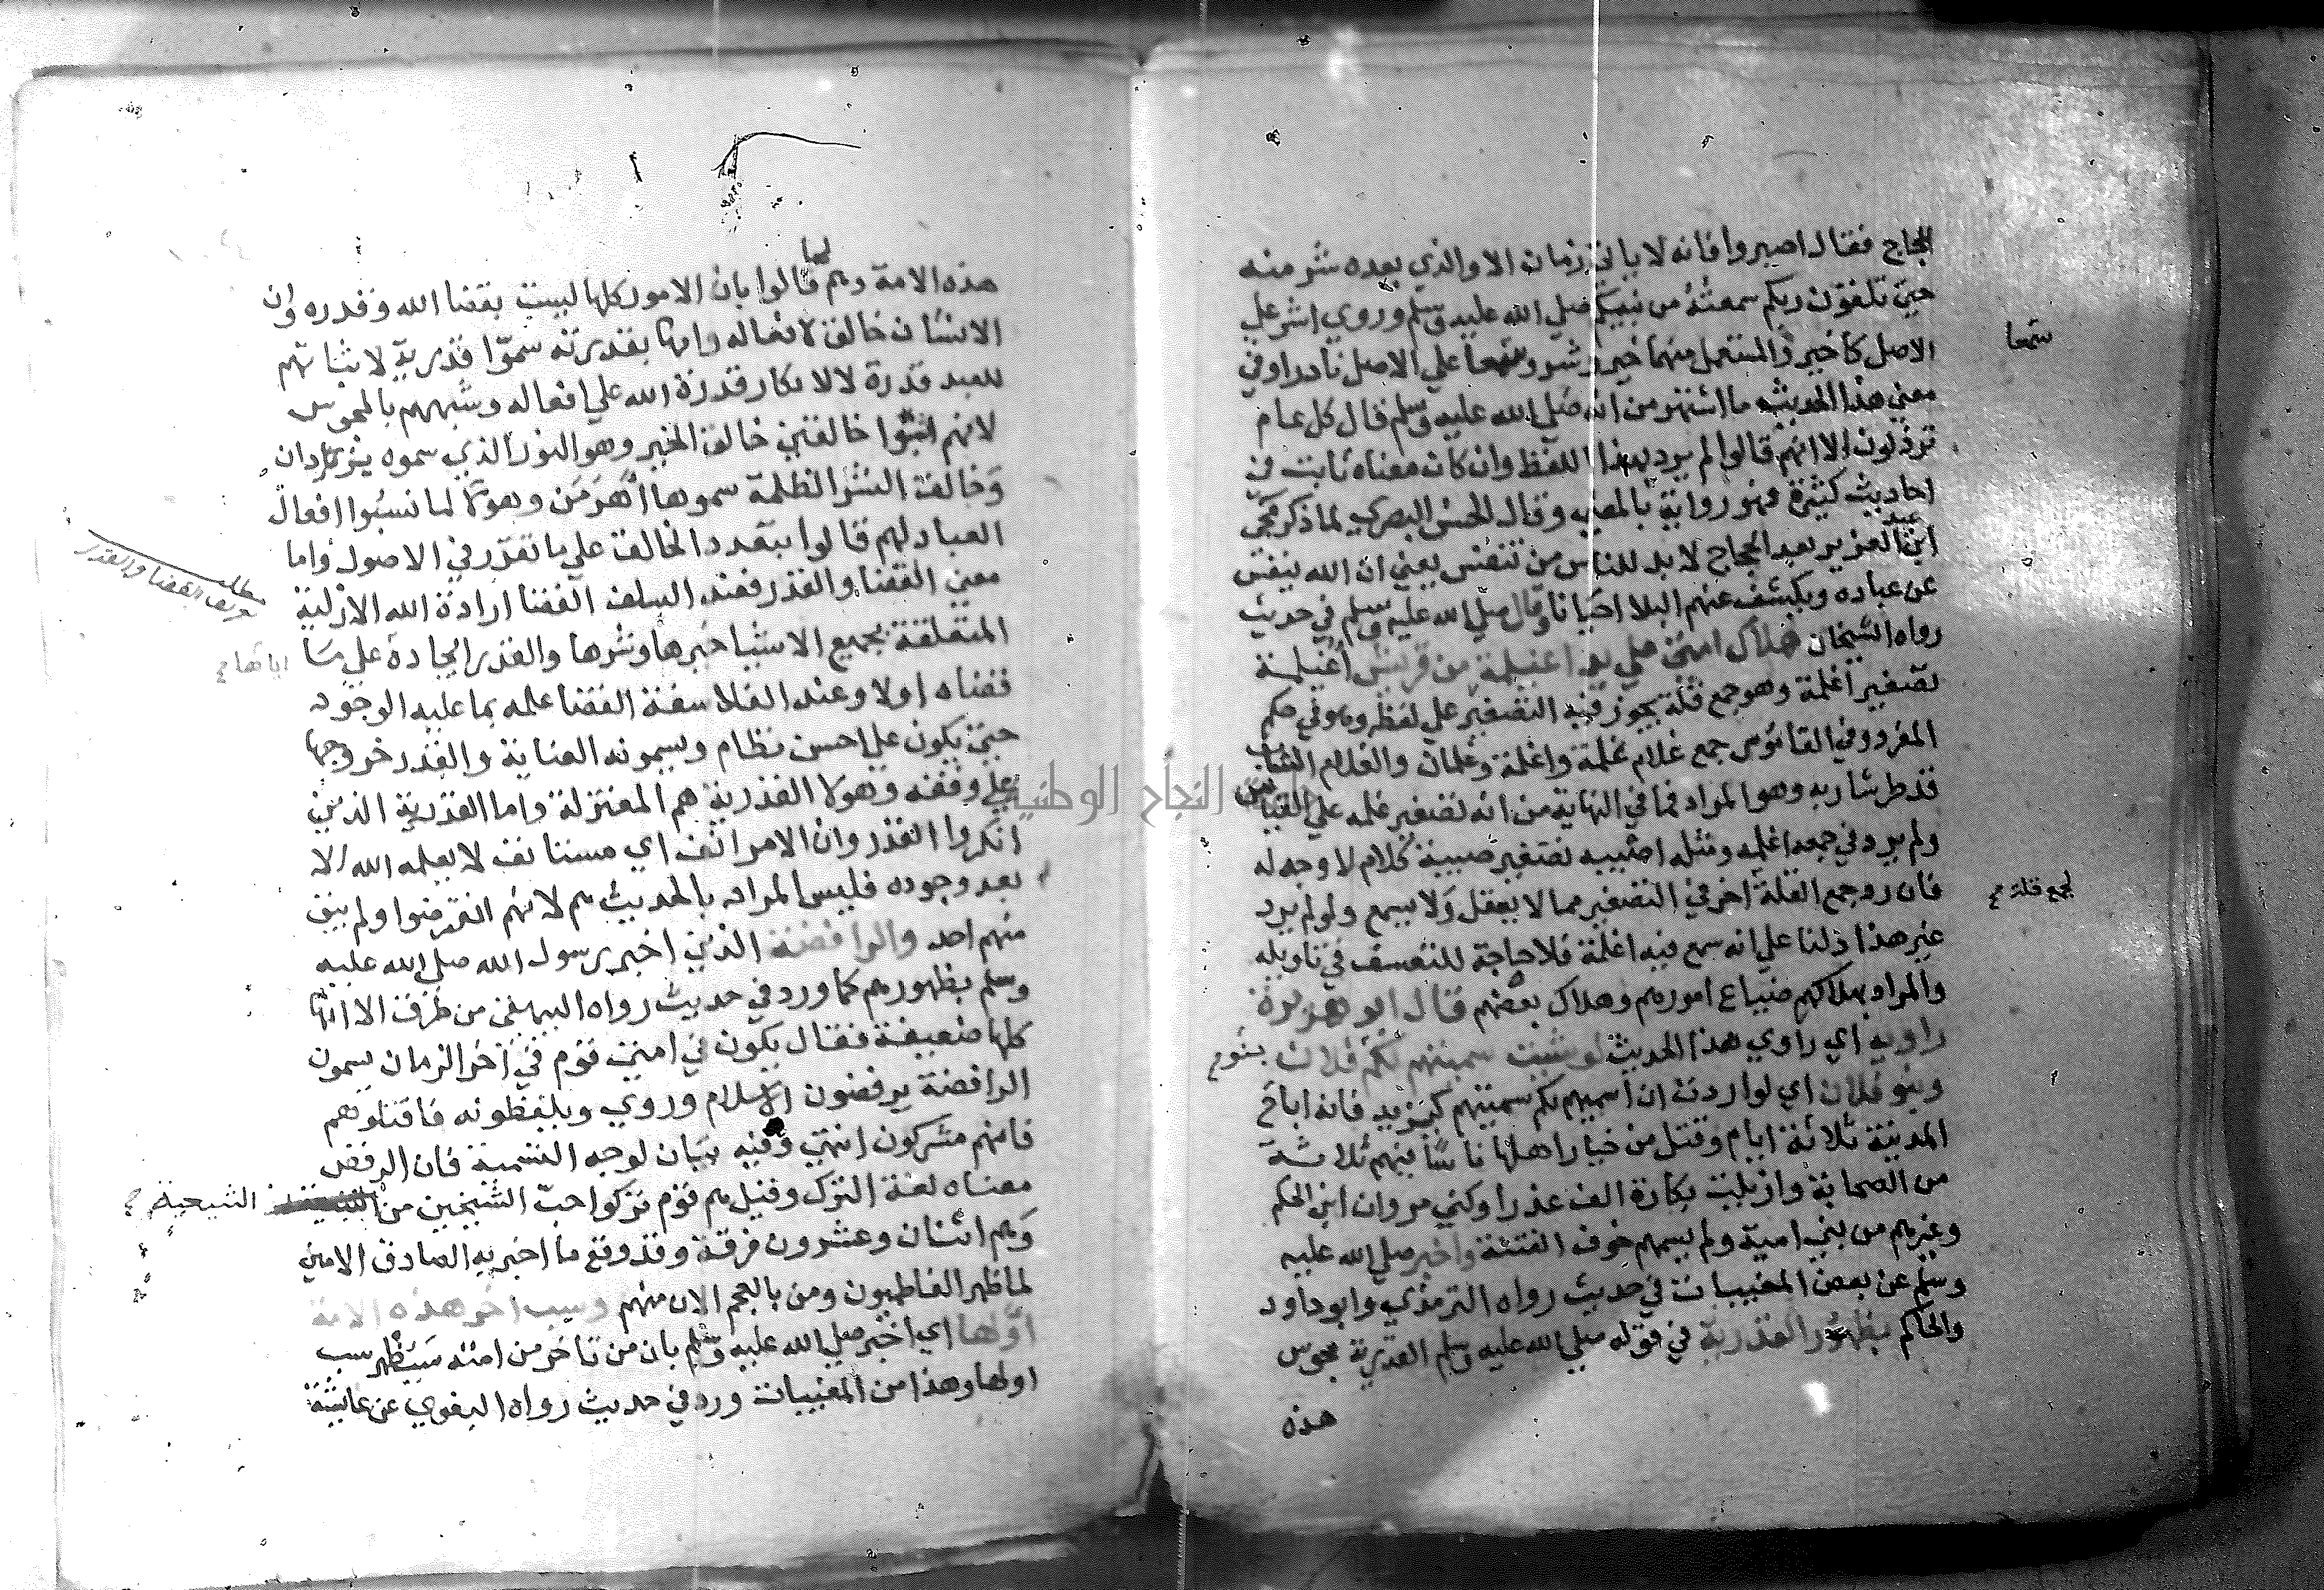 الحجاج فقال اصبروا فانه لا ياتي زمان الا والذي بعده شر منه
حتى تلقون ربكم سمعته من نبيكم صلى الله عليه وسلم وروي اشر على
الاصل كاخير والمستعمل منهما خير وشر وسمعا على الاصل نادرا وفي
سمعا
معنى هذا الحديث ما اشتهر من انه صلى الله عليه وسلم قال كل عام
ترذلون الا انهم قالوا لم يرد بهذا اللفظ وان كان معناه ثابت في
احاديث كثيرة فهو رواية بالمعنى وقال الحسن البصري لما ذكر مجي
عبد
ابن العزيز بعد الحجاج لا بد للناس من تنفس يعني ان الله ينفس
عن عباده ويكشف عنهم البلا احيانا وقال صلى الله عليه وسلم في حديث
رواه الشيخان هلاك امتي على يد اغيلمة من قريش اغيلمة
تصغير اغلمة وهو جمع قلة يجوز فيه التصغير على لفظه وهو في حكم
المفرد وفي القاموس جمع غلام غلمة واغلمة وغلمان والغلام الشاب
قد طر شاربه وهو المراد فما في النهاية من انه تصغير غلمه على القياس
ولم يرد في جمعه اغلمه ومثله اصيبيه تصغير صبية كلام لا وجه له
فان رد جمع القلة اخر في التصغير مما لا يعقل ولا يسمع ولو لم يرد
لجمع قلة
غير هذا دلنا على انه سمع فيه اغلمة فلا حاجة للتعسف في تاويله
والمراد بهلاكهم ضياع امورهم وهلاك بعضهم قال ابو هريرة
راويه اي راوي هذا الحديث لو شيت سميتهم لكم فلان بنو
وبنو فلان اي لو اردت ان اسميهم لكم سميتهم كيزيد فانه اباح
المدينة ثلاثة ايام وقتل من خيار اهلها ناسا فيهم ثلاثة
من الصحابة وازيلت بكارة الف عذرا وكبني مروان ابن الحكم
وغيرهم من بني امية ولم يسمهم خوف الفتنة واخبر صلى الله عليه
وسلم عن بعض المغيبات في حديث رواه الترمذي وابو داود
والحاكم بظهور القدرية في قوله صلى الله عليه وسلم القدرية مجوس
هذه
هذه الامة وهم قالوا بان الامور كلها ليست بقضا الله وقدره وان
الانسان خالق لافعاله وانها بقدرته سموا قدرية لاثباتهم
للعبد قدرة لا لانكار قدرة الله على افعاله وشبههم بالمجوس
لانهم اثبتوا خالقين خالق الخير وهو النور الذي سموه يزدان
وخالق الشر الظلمة سموها اهرمن وهولا لما نسبوا افعال
العباد لهم قالوا بتعدد الخالق على ما تقرر في الاصول واما
مطلب
تعريف القضا والقدر
معنى القضا والقدر فعند السلف القضا ارادة الله الازلية
المتعلقة بجميع الاشيا خيرها وشرها والقدر ايجادة على ما
اياها
قضاه اولا وعند الفلاسفة القضا علمه بما عليه الوجود
حتى يكون على احسن نظام ويسمونه العناية والقدر خروجها
على وفقه وهولا القدرية هم المعتزلة واما القدرية الذين
انكروا القدر وان الامر انف اي مستانف لا يعلمه الله الا
بعد وجوده فليس المراد بالحديث هم لانهم انقرضوا ولم يبق
منهم احد والرافضة الذين اخبر رسول الله صلى الله عليه
وسلم بظهورهم كما ورد في حديث رواه البيهقي من طرق الا انها
كلها ضعيفة فقال يكون في امتي قوم في اخر الزمان يسمون
الرافضة يرفضون الاسلام وروي ويلفظونه فاقتلوهم
فانهم مشركون انتهى وفيه بيان لوجه التسمية فان الرفض
معناه لغة الترك وقيل هم قوم تركوا حب الشيخين من
الشيعية
وهم اثنان وعشرون فرقة وقد وقع ما اخبر به الصادق الامين
لما ظهر الفاطميون ومن بالعجم الان منهم وسب اخر هذه الامة
اولها اي اخبر صلى الله عليه وسلم بان من تاخر من امته سيظهر سب
اولها وهذا من المغيبات ورد في حديث رواه البغوي عن عايشة